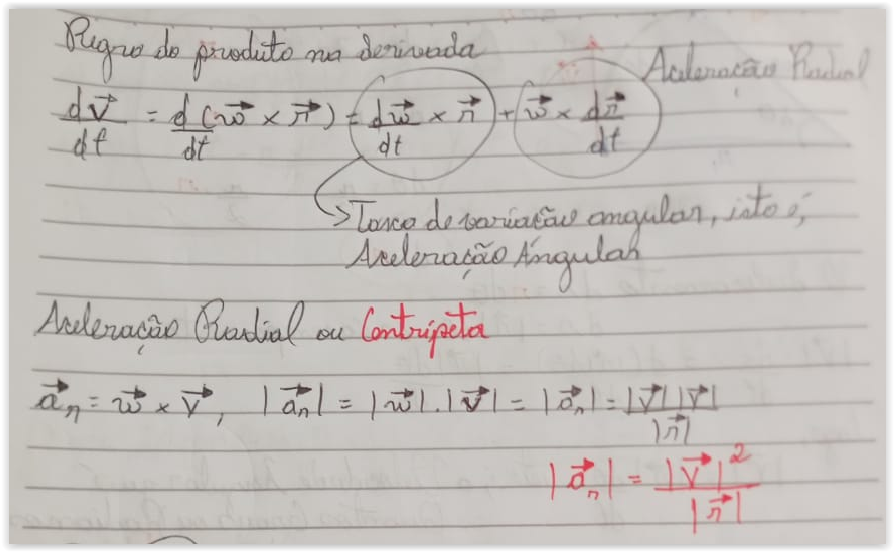 Regra do produto na derivada
Aceleração Radial
dv⃗/dt = d/dt (w⃗ × r⃗) = dw⃗/dt × r⃗ + w⃗ × dr⃗/dt
Taxa de variação angular, isto é,
Aceleração Angular
Aceleração Radial ou Centrípeta
a⃗r = w⃗ × v⃗, |a⃗r| = |w⃗|.|v⃗| = |a⃗r| = |v⃗||v⃗|/|r⃗|
|a⃗r| = |v⃗|²/|r⃗|